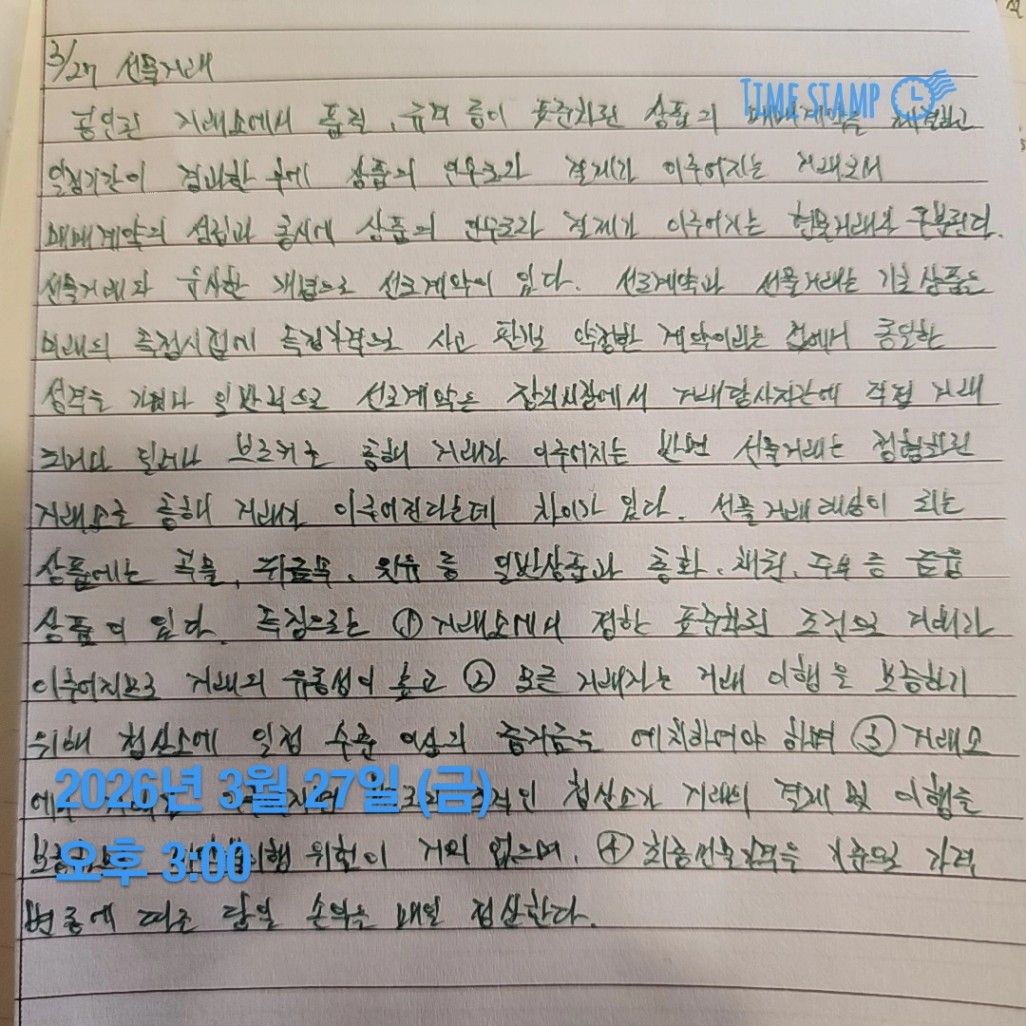 3/27 선물거래
TIME STAMP
공인된 거래소에서 품질, 규격 등이 표준화된 상품의 매매계약을 체결하고
일정기간이 경과한 후에 상품의 인수도와 결제가 이루어지는 거래로서
매매계약의 성립과 동시에 상품의 인수도와 결제가 이루어지는 현물거래와 구분된다.
선물거래와 유사한 개념으로 선도계약이 있다. 선도계약과 선물거래는 기초상품을
미래의 특정시점에 특정가격으로 사고 팔기로 약정한 계약이라는 점에서 동일한
성격을 가지나 일반적으로 선도계약은 장외시장에서 거래당사자간에 직접 거래
되거나 딜러나 브로커를 통해 거래가 이루어지는 반면 선물거래는 정형화된
거래소를 통해 거래가 이루어진다는데 차이가 있다. 선물거래대상이 되는
상품에는 곡물, 귀금속, 원유 등 일반상품과 통화, 채권, 주식 등 금융
상품이 있다. 특징으로는 ① 거래소에서 정한 표준화된 조건으로 거래가
이루어지므로 거래의 유동성이 높고 ② 모든 거래자는 거래 이행을 보증하기
위해 청산소에 일정 수준 이상의 증거금을 예치하여야 하며 ③ 거래소
청산소가 거래의 결제 및 이행을
2026년 3월 27일 (금)
위험이 거의 없으며, ④ 최종선물가격을 기준으로 가격
오후 3:00
변동에 따른 당일 손익을 매일 정산한다.